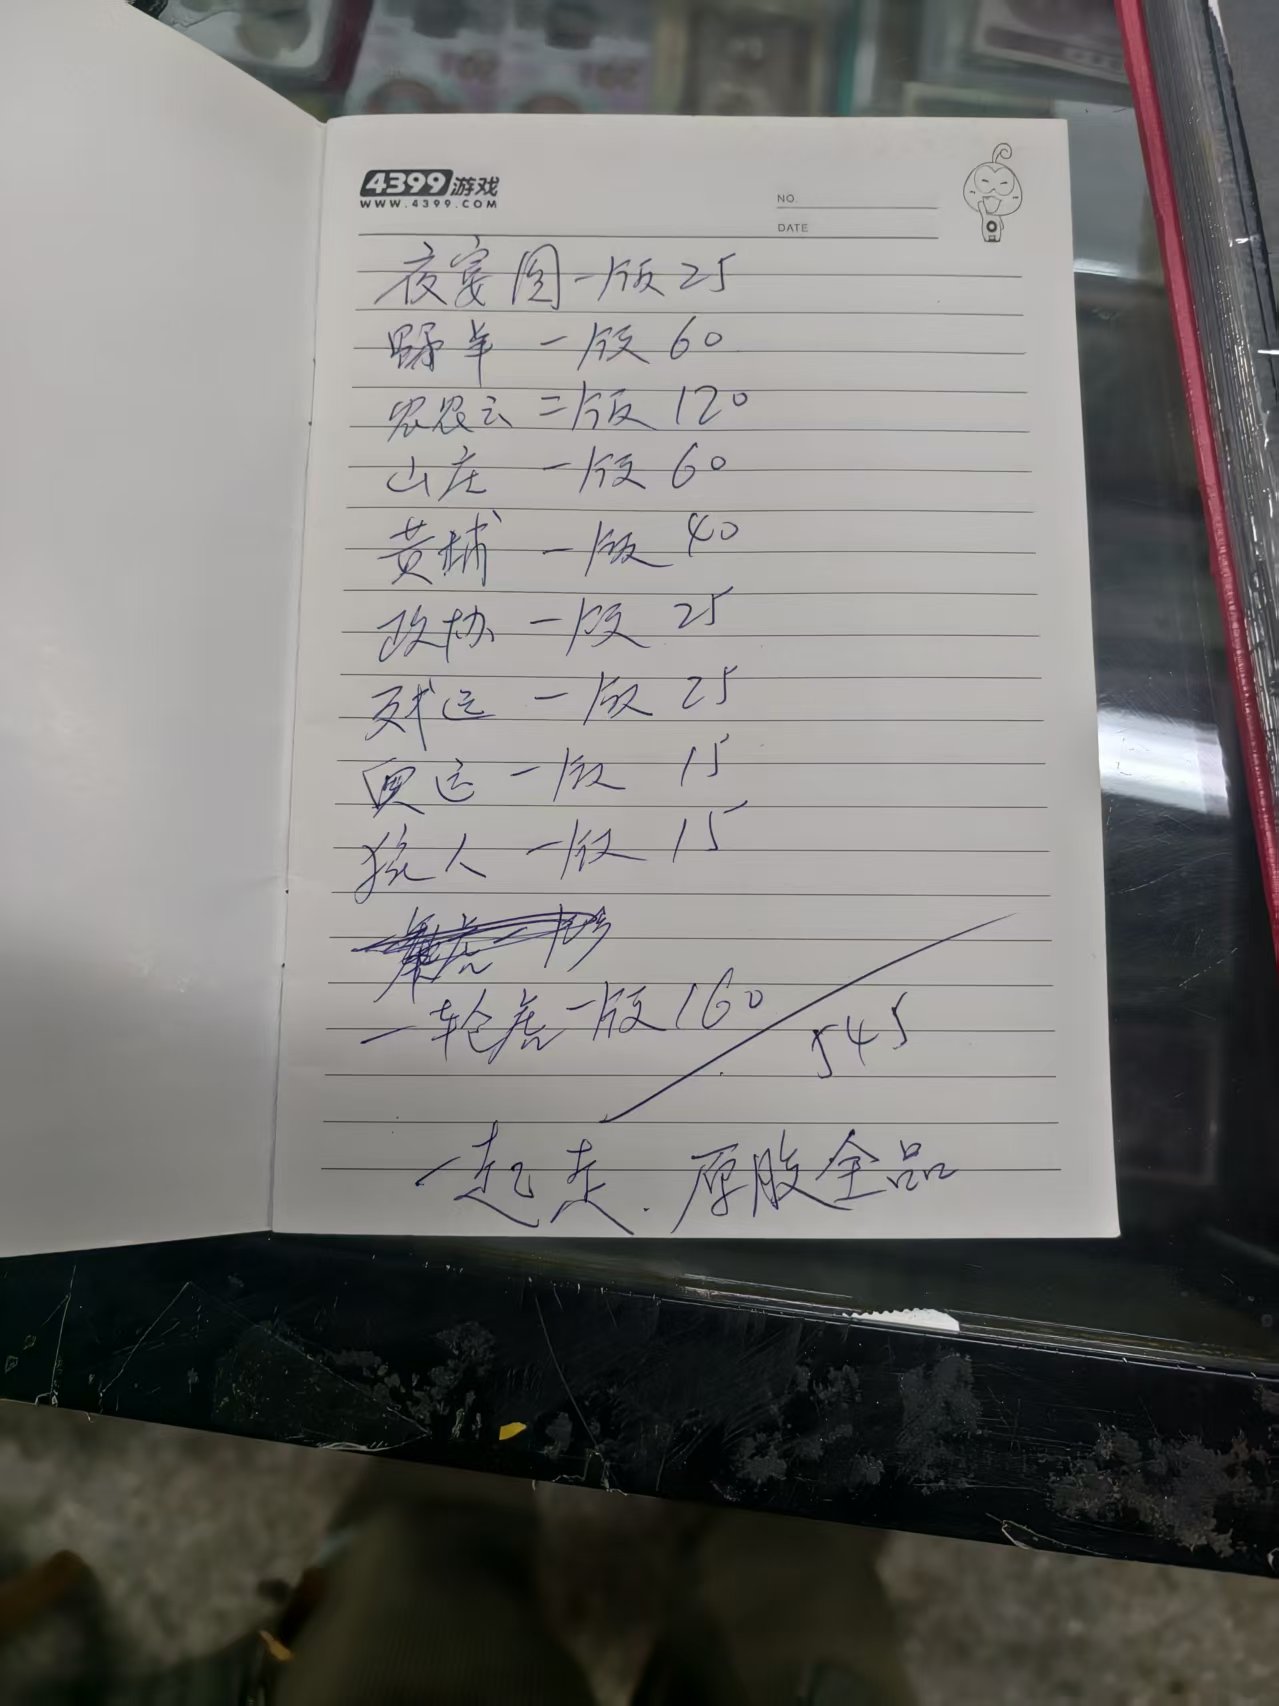 4399游戏
WWW.4399.COM
NO.
DATE
夜宴图一版25
野羊 一版 60
农云 二版 120
山庄 一版 60
黄埔 一版 40
政协 一版 25
残运 一版 25
奥运 一版 15
猿人 一版 15
一轮虎一版160
545
一起走.原胶全品